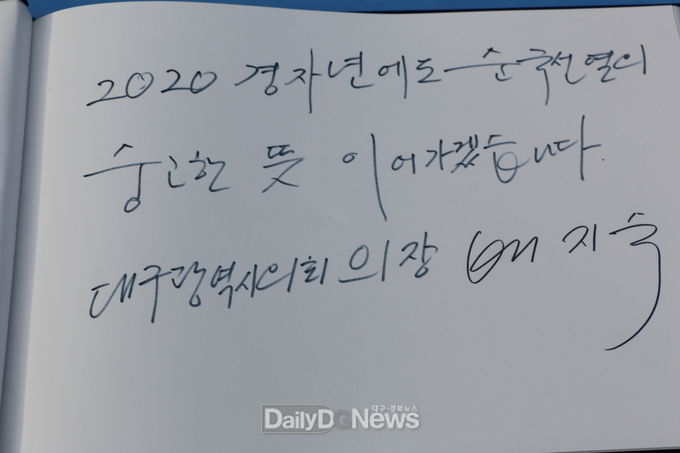 2020 경자년에도 순국선열의
숭고한 뜻 이어가겠습니다.
대구광역시의회 의장 배지숙
대구·경북뉴스
DailyDGNews